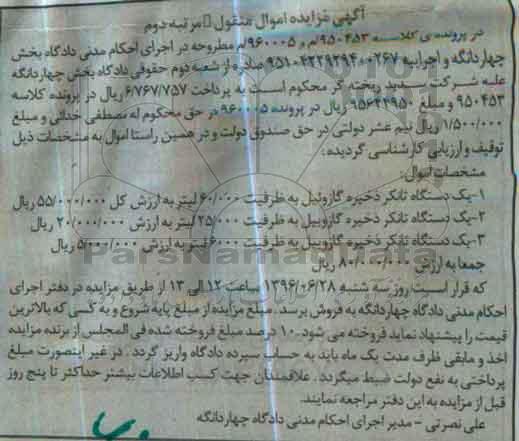 آگهی مزایده اموال منقول مرتبه دوم
در پرونده ی کلاسه ۹۵۰۴۵۳م و ۹۶۰۰۰۵م مطروحه در اجرای احکام مدنی دادگاه بخش
چهاردانگه و اجرائیه ۹۵۱۰۴۲۲۹۳۹۴۰۰۲۶۷ صادره از شعبه دوم حقوقی دادگاه بخش چهاردانگه
علیه شرکت سدید ریخته گر محکوم است به پرداخت ۶/۷۶۷/۷۵۷ ریال در پرونده کلاسه
۹۵۰۴۵۳ و مبلغ ۹۵۶۴۴۹۵۰ ریال در پرونده ۹۶۰۰۰۵ در حق محکوم له مصطفی خدائی و مبلغ
۱/۵۰۰/۰۰۰ ریال نیم عشر دولتی در حق صندوق دولت و در همین راستا اموال به مشخصات ذیل
توقیف و ارزیابی کارشناسی گردیده:
مشخصات اموال:
۱-یک دستگاه تانکر ذخیره گازوئیل به ظرفیت ۶۰/۰۰۰ لیتر به ارزش کل ۵۵/۰۰۰/۰۰۰ ریال
۲-یک دستگاه تانکر ذخیره گازوییل به ظرفیت ۲۵/۰۰۰ لیتر به ارزش ۲۰/۰۰۰/۰۰۰ ریال
۳-یک دستگاه تانکر ذخیره گازوییل به ظرفیت ۶۰۰۰ لیتر به ارزش ۵/۰۰۰/۰۰۰ ریال
جمعا به ارزش ۸۰/۰۰۰/۰۰۰ ریال
ParsNamadData
که قرار است روز سه شنبه ۱۳۹۶/۰۶/۲۸ ساعت ۱۲ الی ۱۳ از طریق مزایده در دفتر اجرای
احکام مدنی دادگاه چهاردانگه به فروش برسد. مبلغ مزایده از مبلغ پایه شروع و به کسی که بالاترین
قیمت را پیشنهاد نماید فروخته می شود. ۱۰ درصد مبلغ فروخته شده فی المجلس از برنده مزایده
اخذ و مابقی ظرف مدت یک ماه باید به حساب سپرده دادگاه واریز گردد. در غیر اینصورت مبلغ
پرداختی به نفع دولت ضبط میگردد. علاقمندان جهت کسب اطلاعات بیشتر حداکثر تا پنج روز
قبل از مزایده به این دفتر مراجعه نمایند.
علی نصرتی - مدیر اجرای احکام مدنی دادگاه چهاردانگه